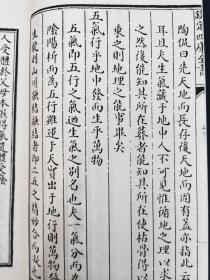 欽定四庫全書
陶侃曰先天地而長存後天地而固有蓋亦指此云
耳且夫生氣藏於地中人不可見惟循地之理以求
之然後能知其所在葬者能知其所在使枯骨得以
乘之則地理之能事畢矣
五氣行乎地中發而生乎萬物
五氣即五行之氣迺生氣之別名也夫一氣分而為
陰陽析而為五行雖運于天實出于地行則萬物發
生聚則山川融結融結者即二五之精妙合而凝也
人受體於父母本骸得氣遺體受蔭